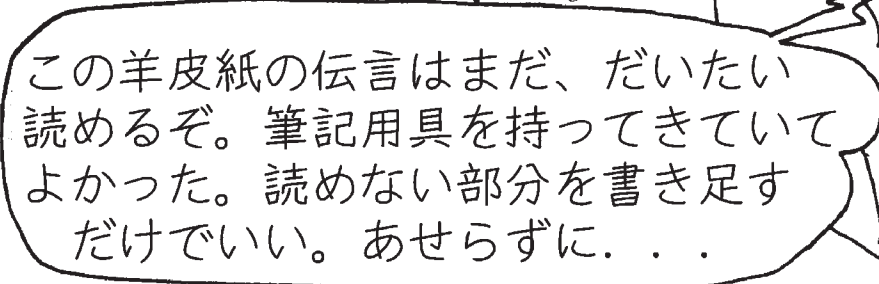 この羊皮紙の伝言はまだ、だいたい
読めるぞ。筆記用具を持ってきていて
よかった。読めない部分を書き足す
だけでいい。あせらずに...